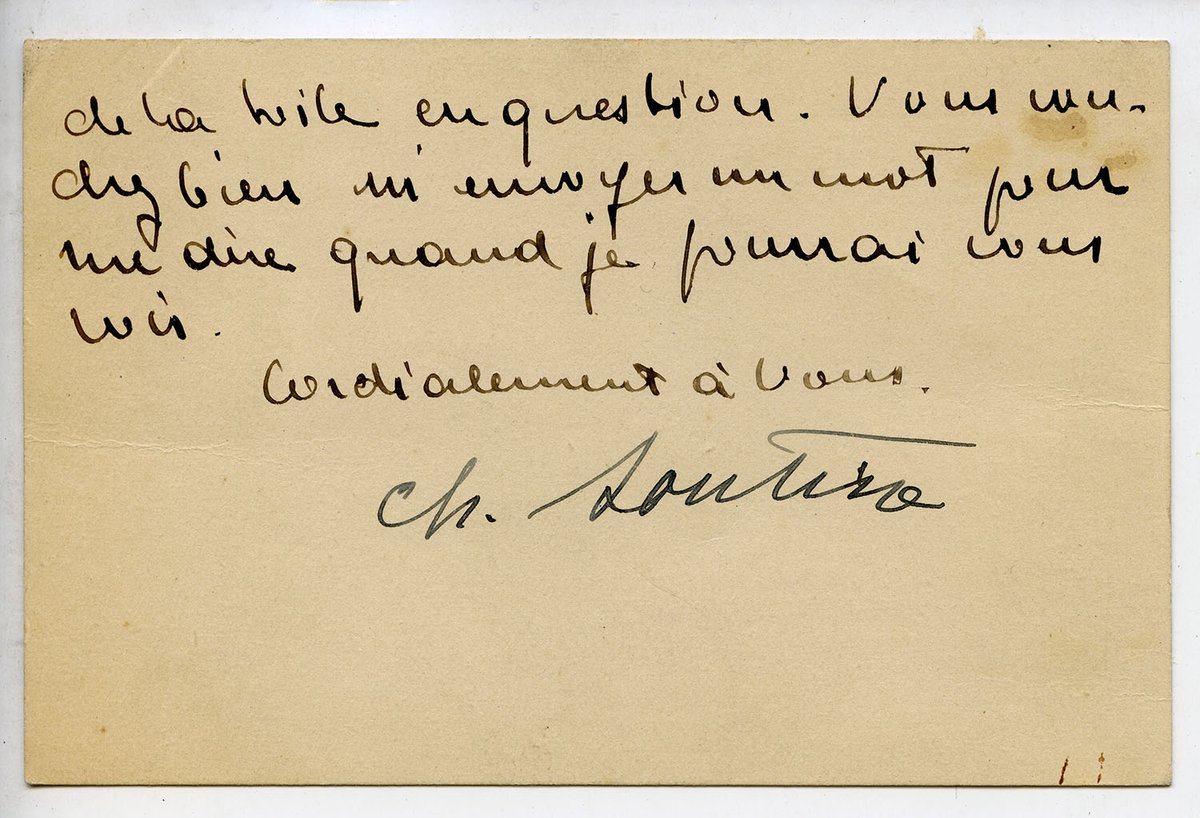 de la toile en question. Vous vou-
drez bien m'envoyer un mot pour
me dire quand je pourrai vous
voir.
Cordialement à vous.
Ch. Soutine